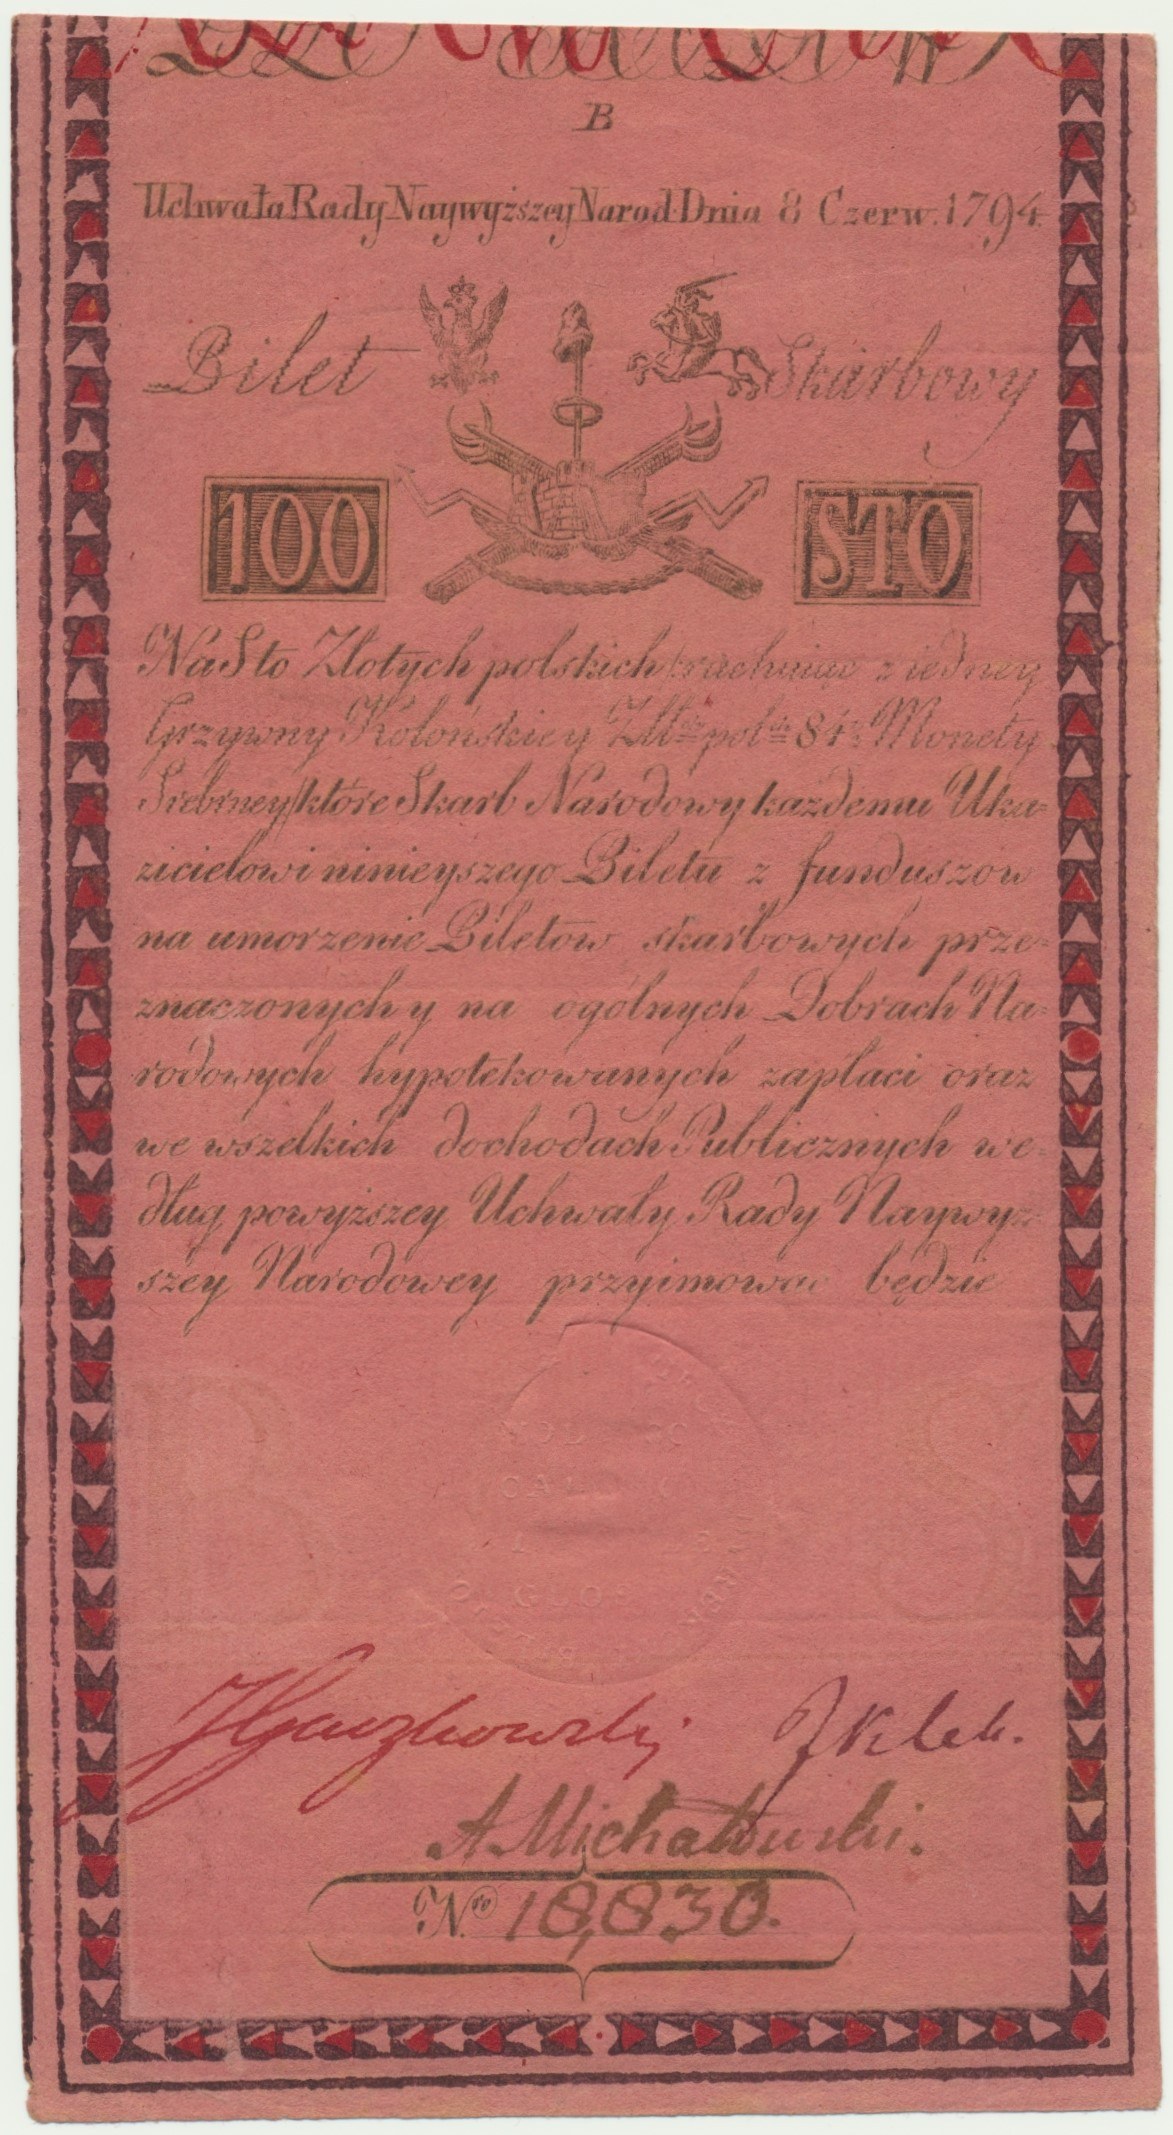 B
Uchwała Rady Naywyższey Narod: Dnia 8 Czerw. 1794.
Bilet Skarbowy
100 STO
Na Sto Złotych polskich /rachuiąc z iedney
Grzywny Kolońskiey Złł: pol: 84½ Monety
Srebrney/ które Skarb Narodowy każdemu Uka-
zicielowi ninieyszego Biletu z funduszow
na umorzenie Biletow skarbowych prze-
znaczonych y na ogólnych Dobrach Na-
rodowych hypotekowanych zapłaci oraz
we wszelkich dochodach Publicznych we-
dług powyższey Uchwały Rady Naywyż-
szey Narodowey przyimować będzie
B S
GŁOS
A Michałowski.
Nro 18,830.